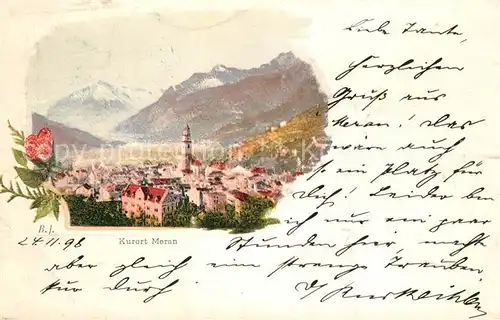 Liebe Tante,
herzlichen
Gruß aus
Meran! das
wäre auch
so ein Platz für
Dich! Leider bin
ich nur ein paar
B.J.
24.11.98
Kurort Meran
Stunden hier, mache
aber gleich eine strenge Trauben
kur durch